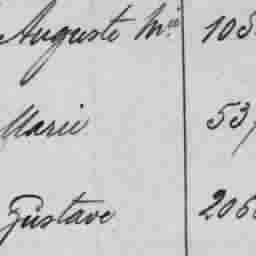 Auguste M.ie 105
Marie 53
Gustave 206